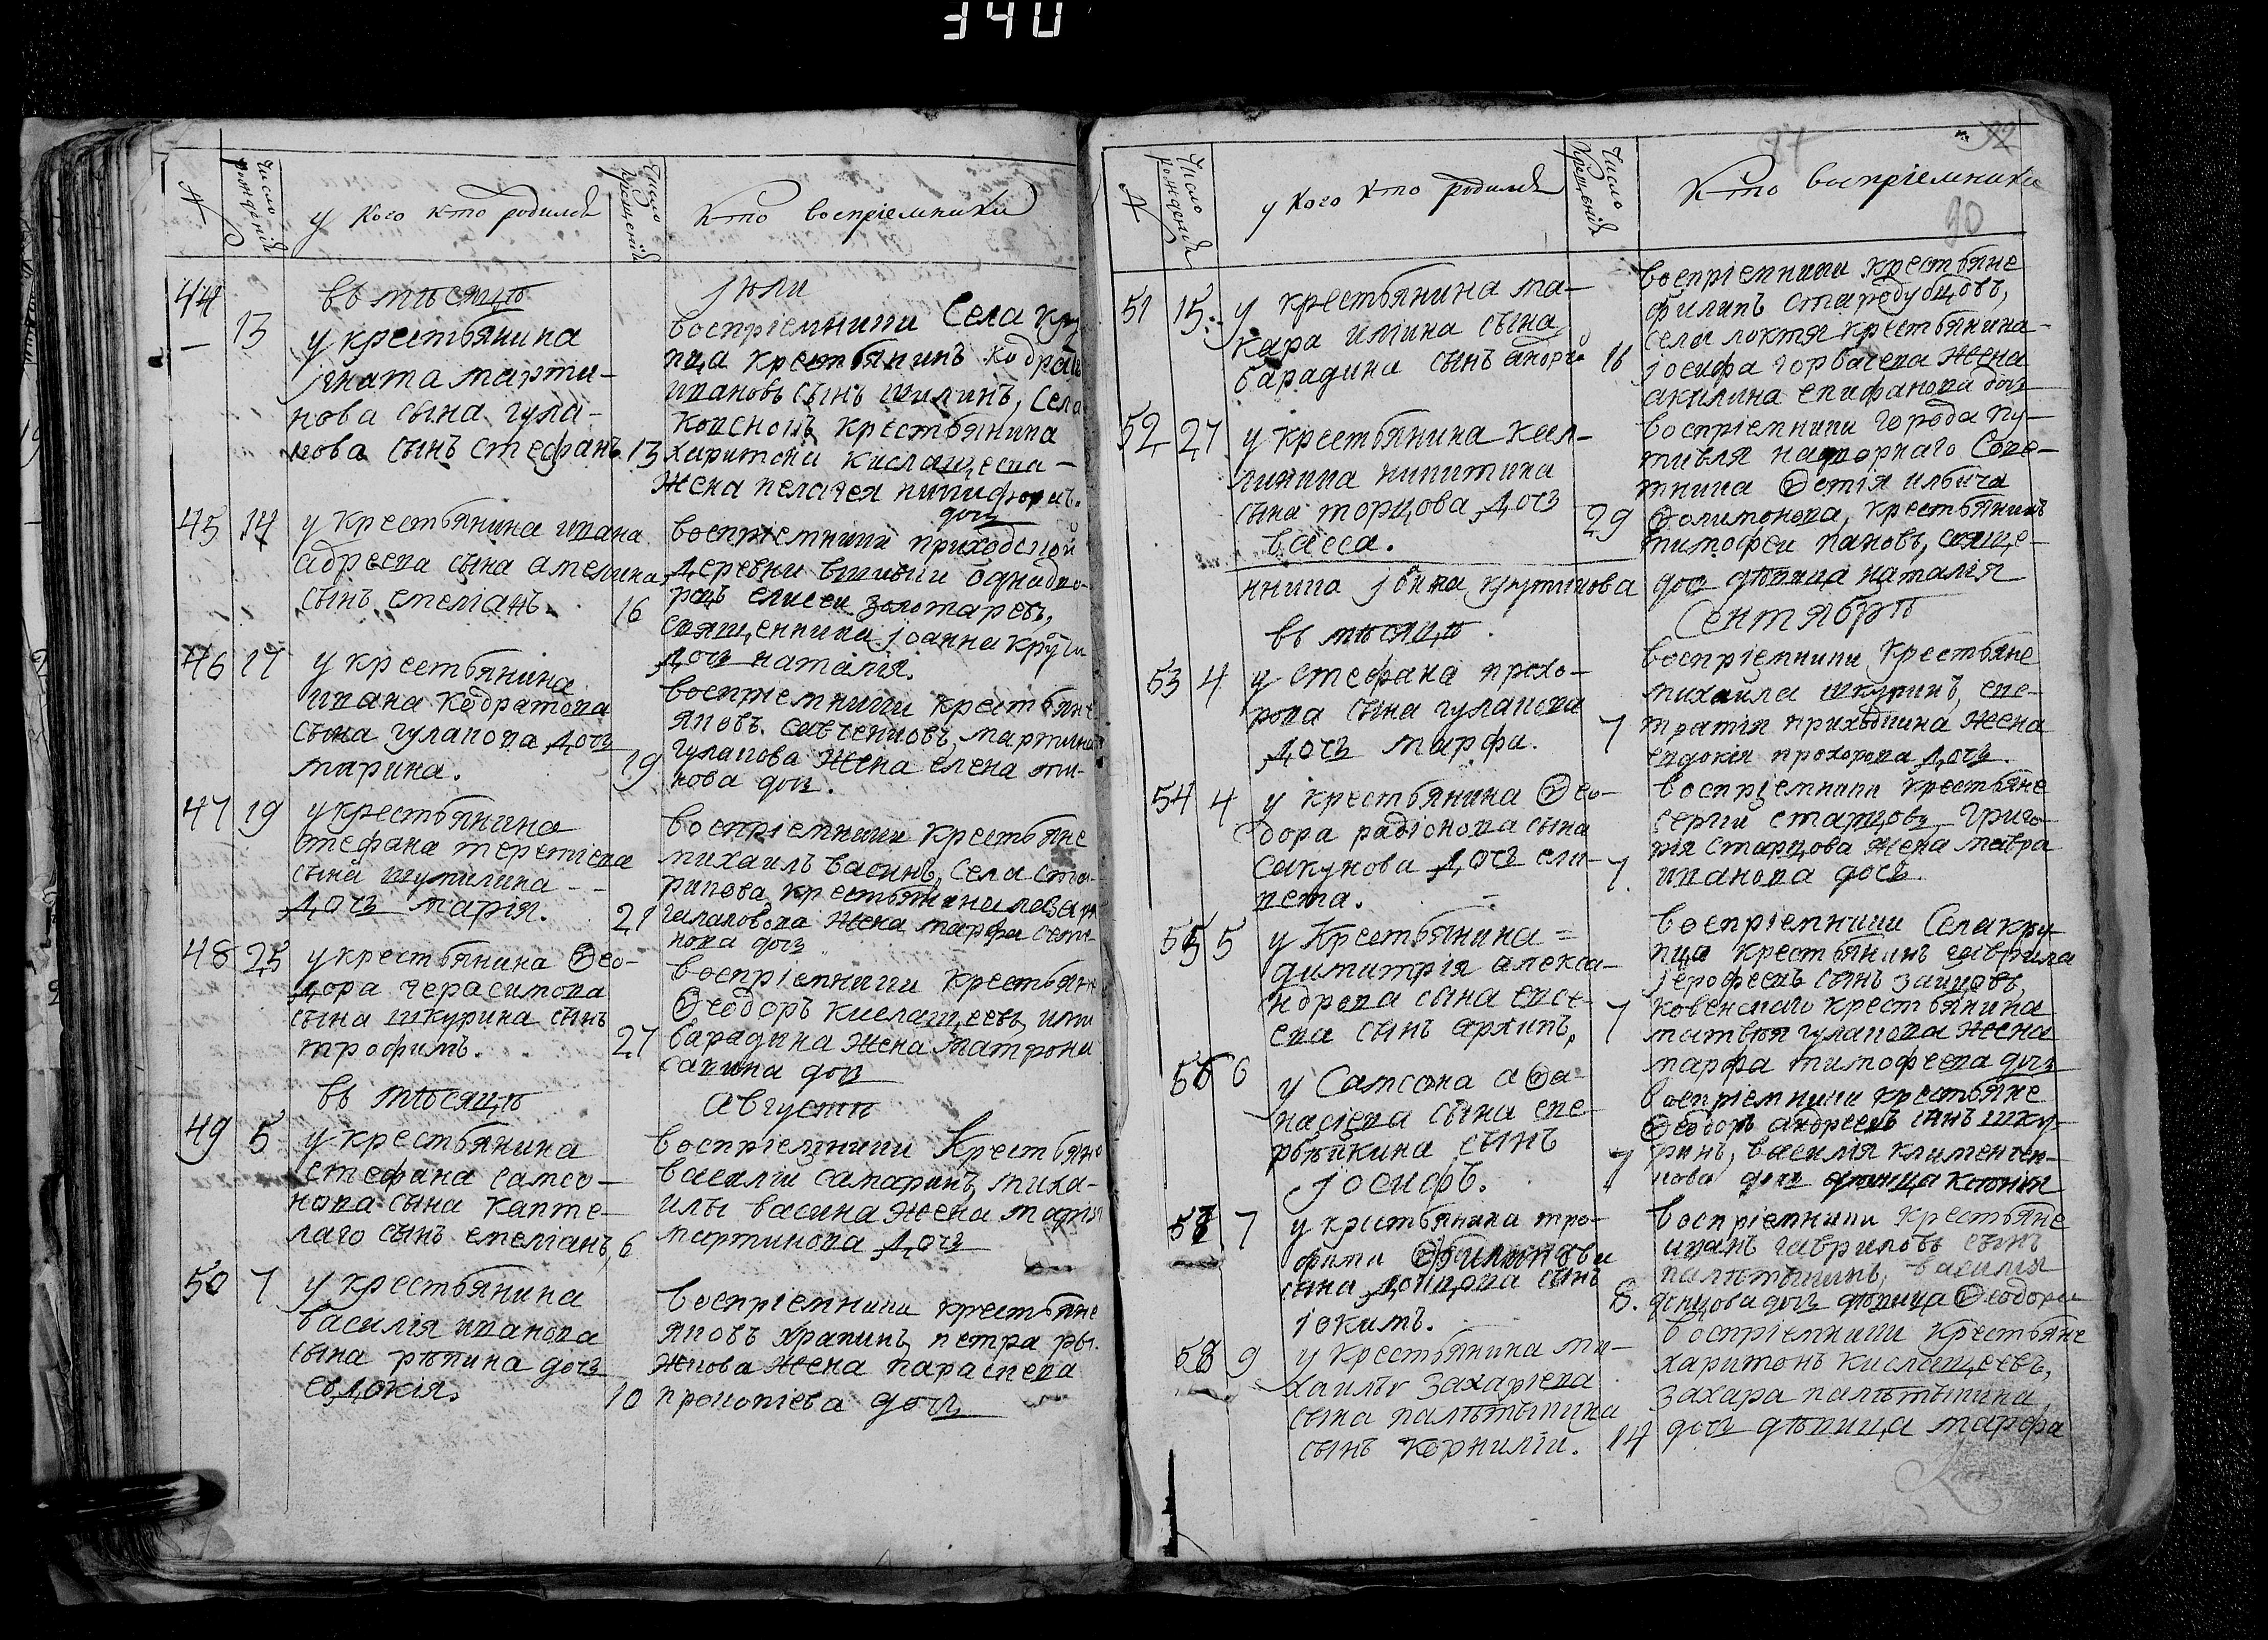 340
№
Число рожденiя
у кого кто родился
Число крещенiя
Кто воспрiемники
44
въ мѣсяцѣ
Iюли
13
у крестьянина
игната марти-
нова сына гула-
кова сынъ стефанъ. 13
воспрiемники Села кру
пца крестьянинъ кодратъ
ивановъ сынъ шилинъ, Села
крестьянина
харитона кислащеева
жена пелагея никифоровъ.
дочь
45 14 у крестьянина ивана
адреева сына амелина,
сынъ емелiанъ. 16
воспрiемники приходской
деревни вшивки однадво-
рецъ елисей золотаревъ,
священника iоанна круги
дочь наталiя.
46 17 у крестьянина
ивана кодратова
сына гулакова дочь
марина. 19
воспрiемники крестьяне
яковъ савченковъ, мартина
гулакова жена елена ми-
нова дочь.
47 19 у крестьянина
стефана терентiева
сына шумилина -
дочь марiя. 21
воспрiемники крестьяне
михаилъ васинъ, села ста-
рикова крестьянина
жена марфа
нова дочь
48 25 у крестьянина Ѳео-
дора герасимова
сына шкурина сынъ
трофимъ. 27
воспрiемники крестьяне
Ѳеодоръ кислащеевъ,
барадина жена матрона
савина дочь
въ мѣсяцѣ
августѣ
49 5 у крестьянина
стефана самсо-
нова сына капте-
лаго сынъ емелiанъ, 6
воспрiемники Крестьяне
василiй самаринъ, миха-
илы васина жена марiя
мартинова дочь
50 7 у крестьянина
василiя иванова
сына рѣпина дочь
евдокiя. 10
воспрiемники крестьяне
яковъ храпинъ, петра ры-
жкова жена параскева
прокопiева дочь
№
Число рожденiя
у кого кто родился
Число Крещенiя
Кто воспрiемники
92
90
51 15 у крестьянина ма-
кара сына
барадина сынъ андрей 16
воспрiемники крестьяне
филипъ стародубцовъ,
села локтя крестьянина
iосифа горбачева жена
акилина епифанова дочь
52 27 у крестьянина кал-
линика никитина
сына торцова дочь
васса. 29
воспрiемники города пу-
тивля надворнаго Сове-
тника Ѳотiя ильича
Ѳолимонова, крестьянинъ
тимофей пановъ, свяще-
нника iоанна крутикова дочь дѣвица наталiя
въ мѣсяцѣ
Сентябрѣ
53 4 у стефана прохо-
рова сына гулакова
дочь марфа. 7
воспрiемники Крестьяне
михаила шкуринъ, евс-
тратiя приходкина жена
евдокiя прохорова дочь.
54 4 у крестьянина Ѳео-
дора радiонова сына
сакунова дочь ели-
вета. 7.
воспрiемники крестьяне
сергiй старцовъ, григо-
рiя старцова жена мавра
иванова дочь.
55 5 у Крестьянина =
димитрiя алекса-
ндрова сына евсе-
ева сынъ архипъ, 7
воспрiемники Села кру-
пца крестьянинъ гаврила
iерофеевъ сынъ зайцовъ,
ковенскаго крестьянина
матвѣя гулакова жена
марфа тимофеева дочь
56 6 у Самсона аѲа-
насiева сына
сынъ
iосифъ. 7
воспрiемники крестьяне
Ѳеодоръ андреевъ сынъ шку-
ринъ, василiя климентен-
кова дочь дѣвица ксенiя
57 7 у крестьянина тро-
фима
сына донцова сынъ
iокимъ. 8.
воспрiемники крестьяне
иванъ гавриловъ сынъ
палѣтыкинъ, василiя
донцова дочь дѣвица Ѳеодора
58 9 у крестьянина ми-
хаила захарiева
сына палѣтыкина
сынъ корнилiй. 14
воспрiемники крестьяне
харитонъ кислащеевъ,
захара палѣтыкина
дочь дѣвица марфа